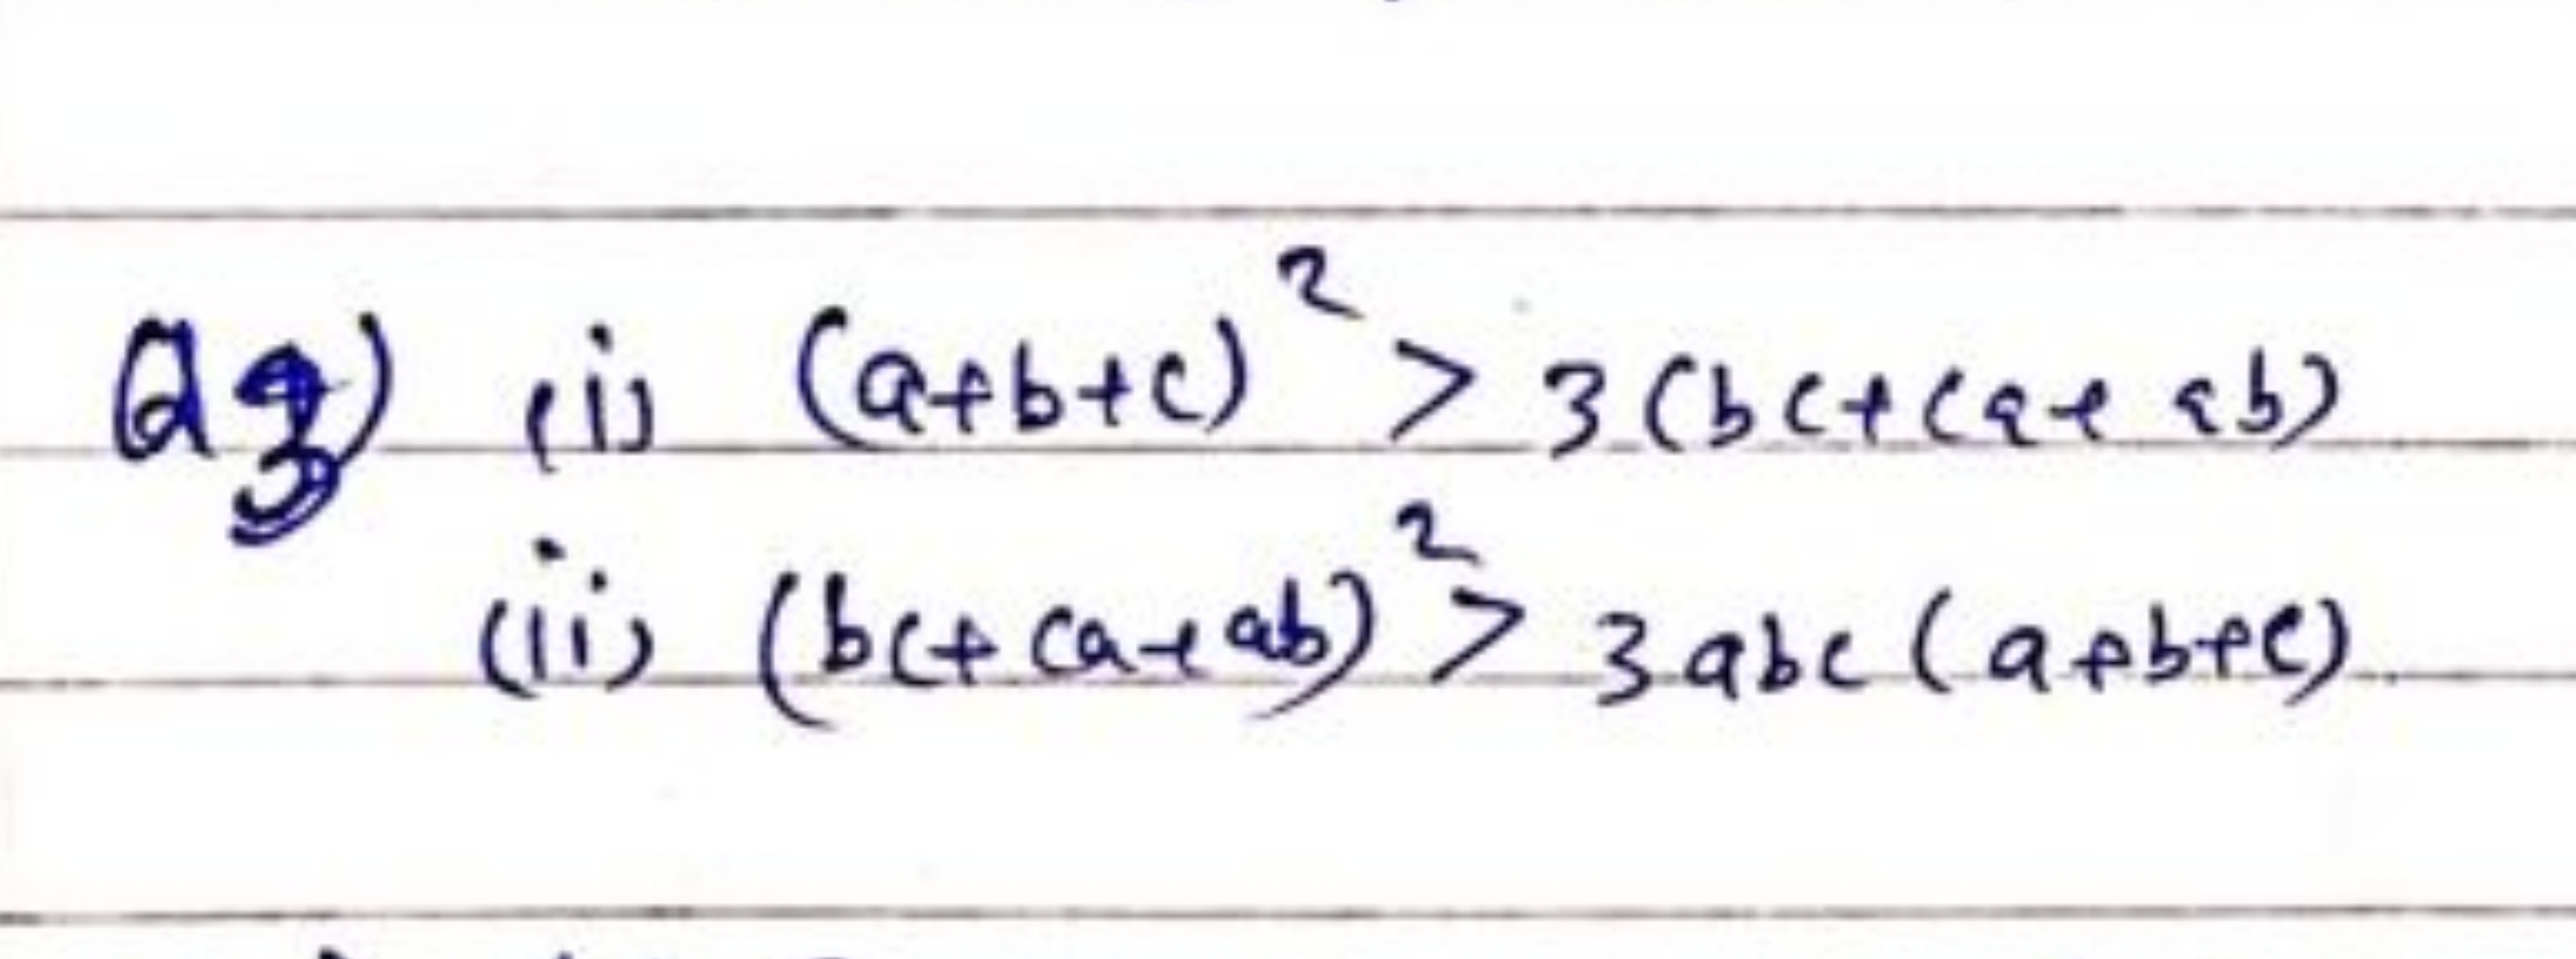 Q3) (i) (a+b+c)² > 3(bc+ca+ab)
(ii) (bc+ca+ab)² > 3abc(a+b+c).